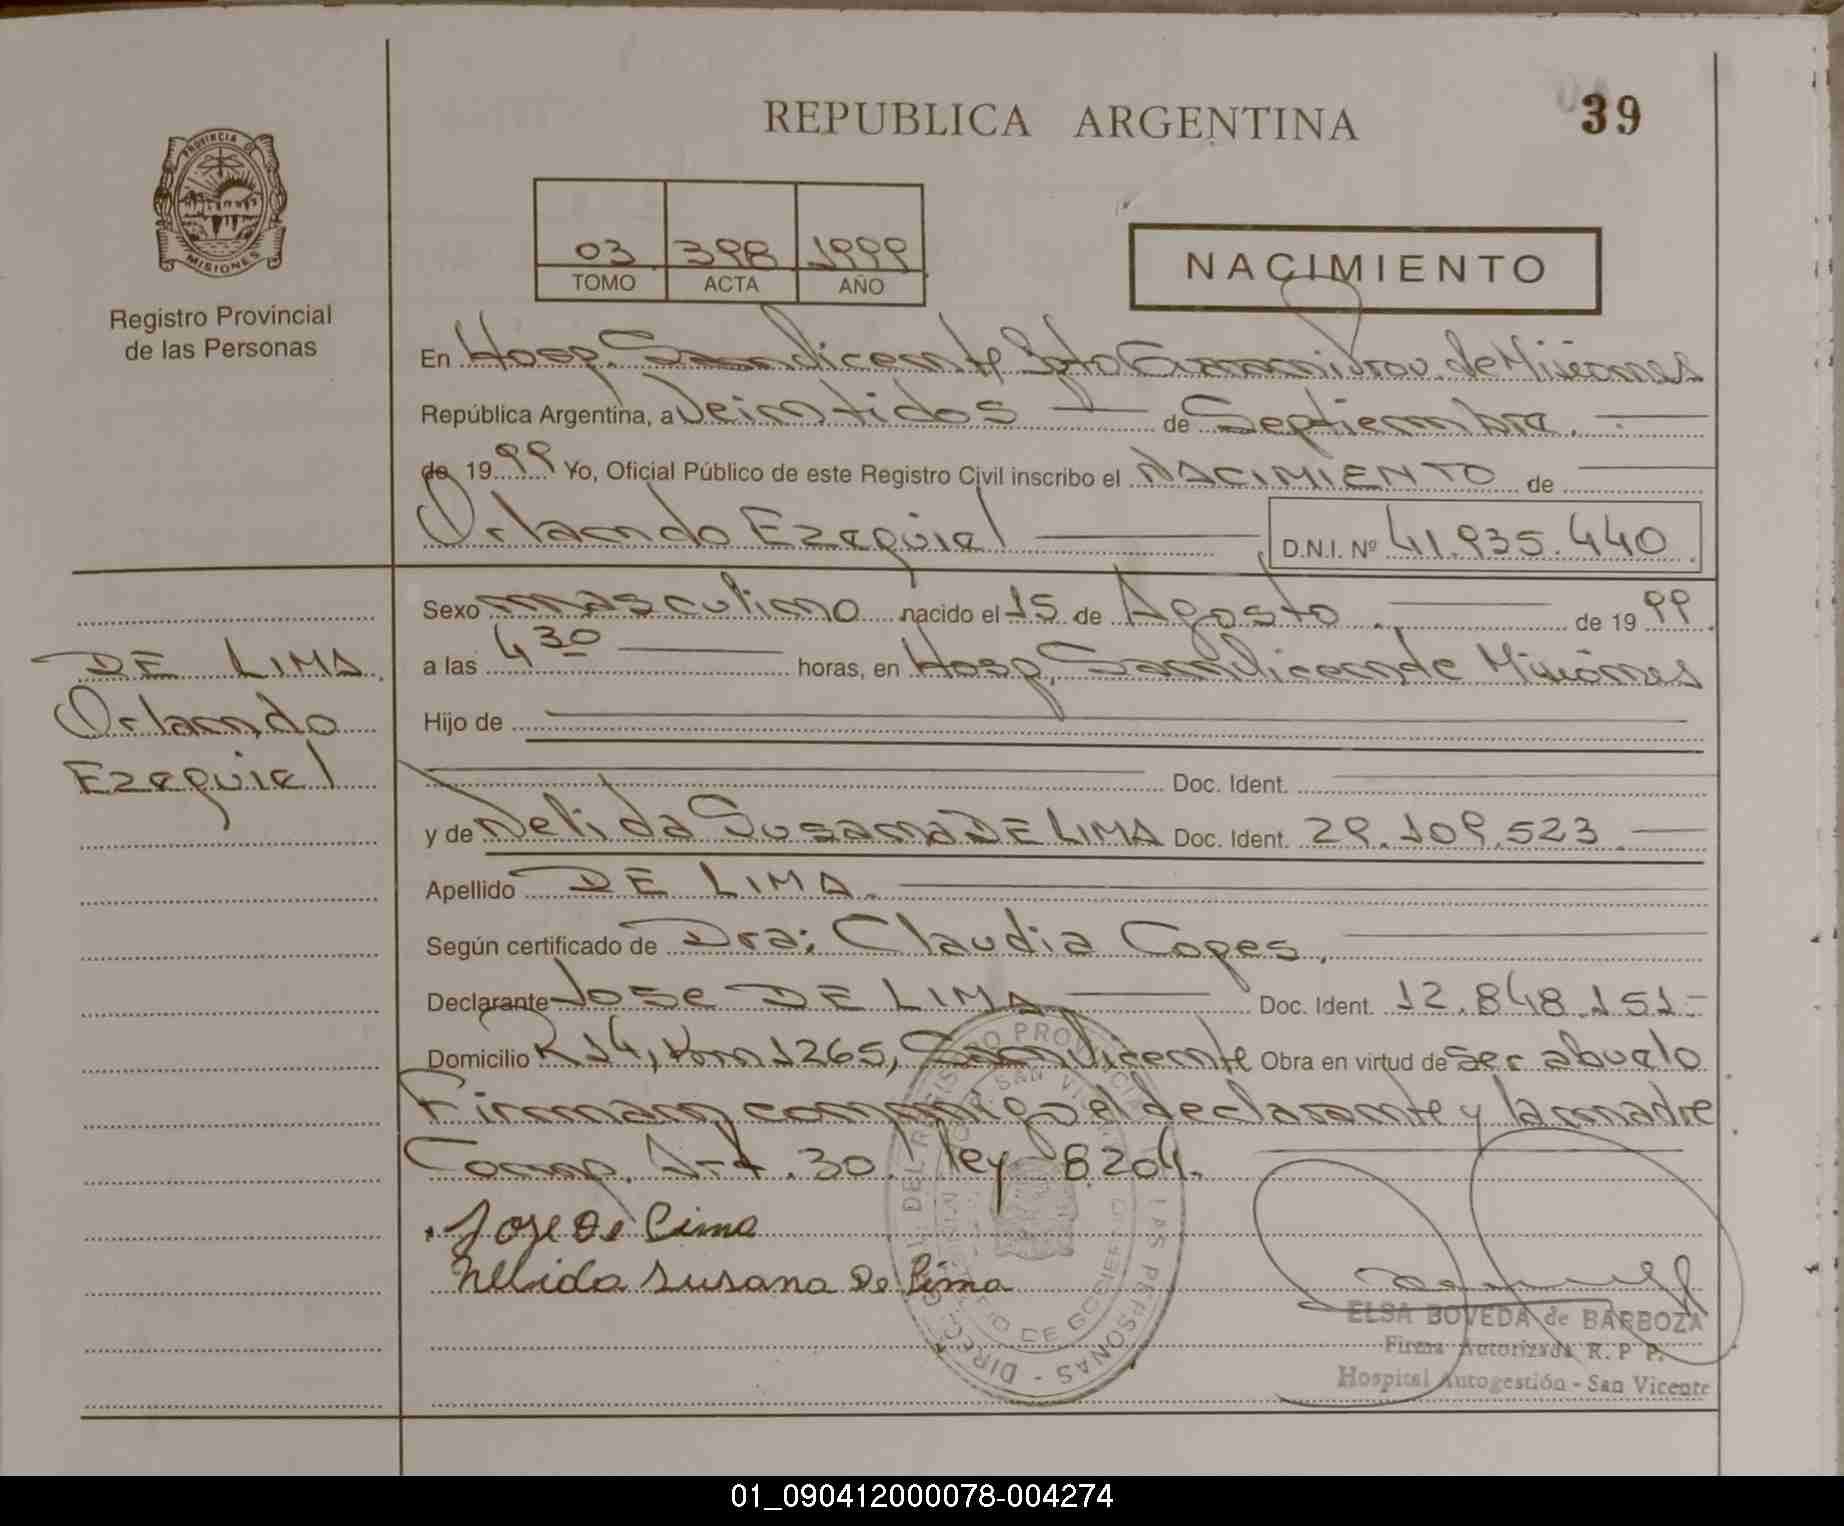 REPUBLICA ARGENTINA
39
PROVINCIA DE
MISIONES
Registro Provincial
de las Personas
03 398 1999
TOMO ACTA AÑO
NACIMIENTO
En Hosp. San Vicente Dpto Guarani Prov. de Misiones
República Argentina, a Veintidos de Septiembre.
de 1999 Yo, Oficial Público de este Registro Civil inscribo el NACIMIENTO de
Orlando Ezequiel D.N.I. Nº 41.935.440
Sexo masculino nacido el 15 de Agosto. de 1999
a las 4 30 horas, en Hosp. San Vicente Misiones
Hijo de
Doc. Ident.
y de Nelida Susana DE LIMA Doc. Ident. 29.109.523.
Apellido DE LIMA.
Según certificado de Dra: Claudia Copes,
Declarante Jose DE LIMA Doc. Ident. 12.848.151-
Domicilio R 14, Km 1265, San Vicente Obra en virtud de ser abuelo
Firman conmigo el declarante y la madre
Comp. Art. 30 ley 8204.
Jose De Lima
Nelida Susana De Lima
DE LIMA
Orlando
Ezequiel
ELSA BOVEDA de BARBOZA
Firma Autorizada R. P. P.
Hospital Autogestión - San Vicente
01_090412000078-004274